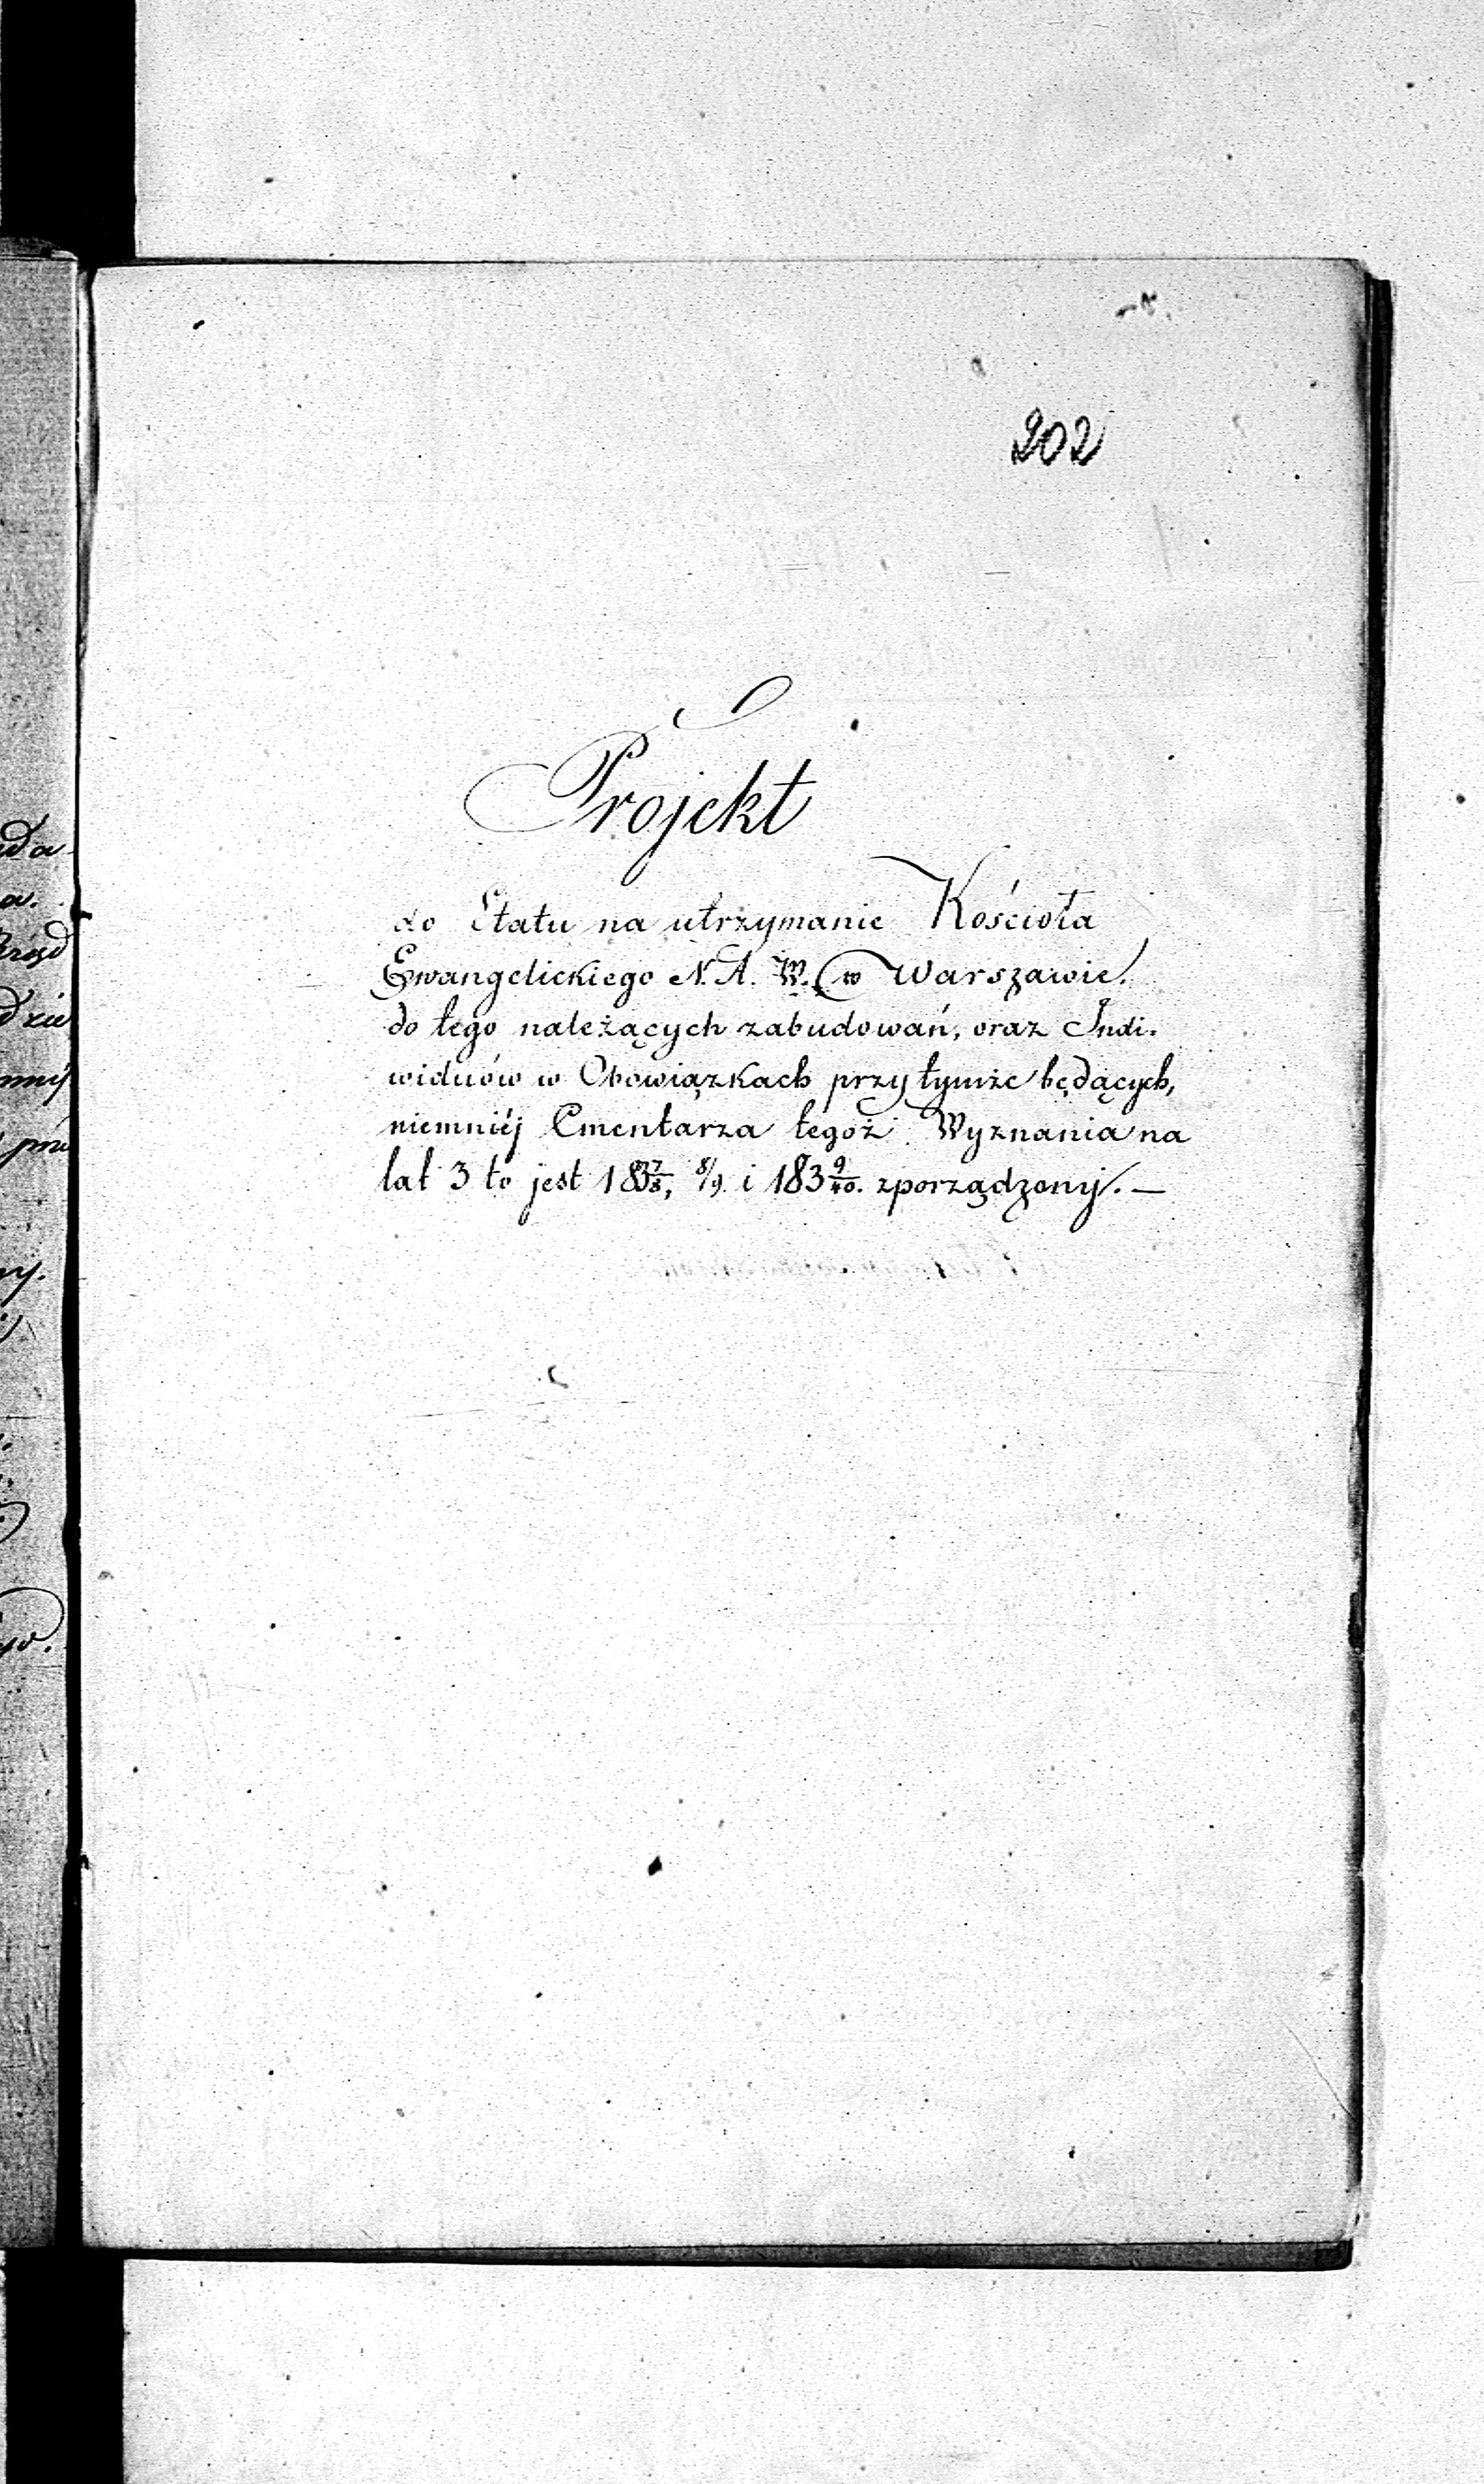 202
Projekt
do Etatu na utrzymanie Kościoła
Ewangelickiego N. A. W. w Warszawie,
do tego należących zabudowań, oraz Indi-
widuów w Obowiązkach przy tymże będących,
niemniéj Cmentarza tegoż Wyznania na
lat 3 to jest 183 7/8, 8/9 i 183 9/40. zporządzony. —